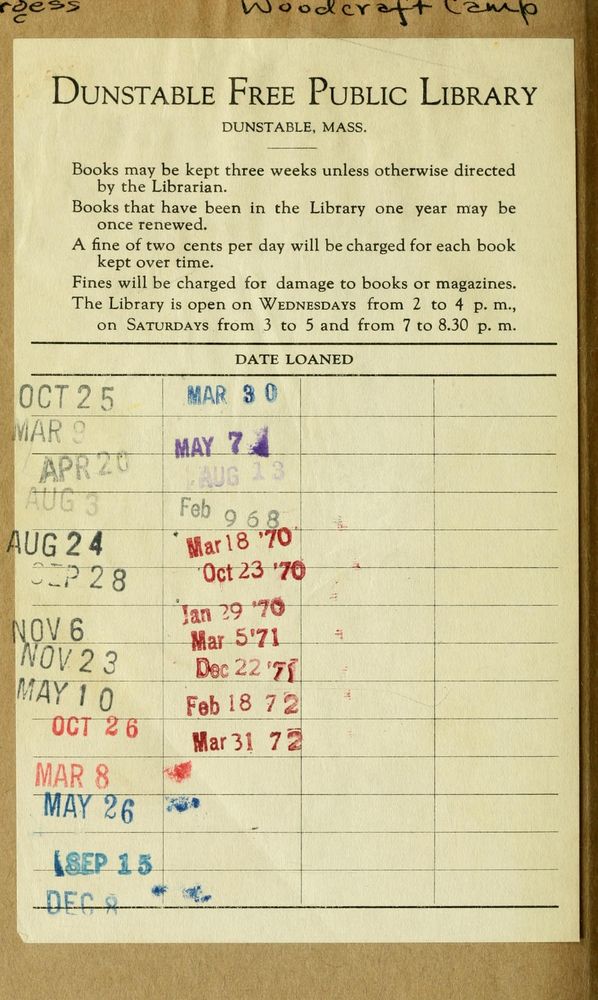 Woodcraft Camp
DUNSTABLE FREE PUBLIC LIBRARY
DUNSTABLE, MASS.
Books may be kept three weeks unless otherwise directed
by the Librarian.
Books that have been in the Library one year may be
once renewed.
A fine of two cents per day will be charged for each book
kept over time.
Fines will be charged for damage to books or magazines.
The Library is open on WEDNESDAYS from 2 to 4 p. m.,
on SATURDAYS from 3 to 5 and from 7 to 8.30 p. m.
DATE LOANED
OCT 25
MAR 9
APR 20
AUG 3
AUG 24
SEP 28
NOV 6
NOV 23
MAY 10
OCT 26
MAR 8
MAY 26
SEP 15
DEC 8
MAR 30
MAY 7
AUG 13
Feb 968
Mar 18 '70
Oct 23 '70
Jan 29 '70
Mar 5 '71
Dec 22 '71
Feb 18 72
Mar 31 72